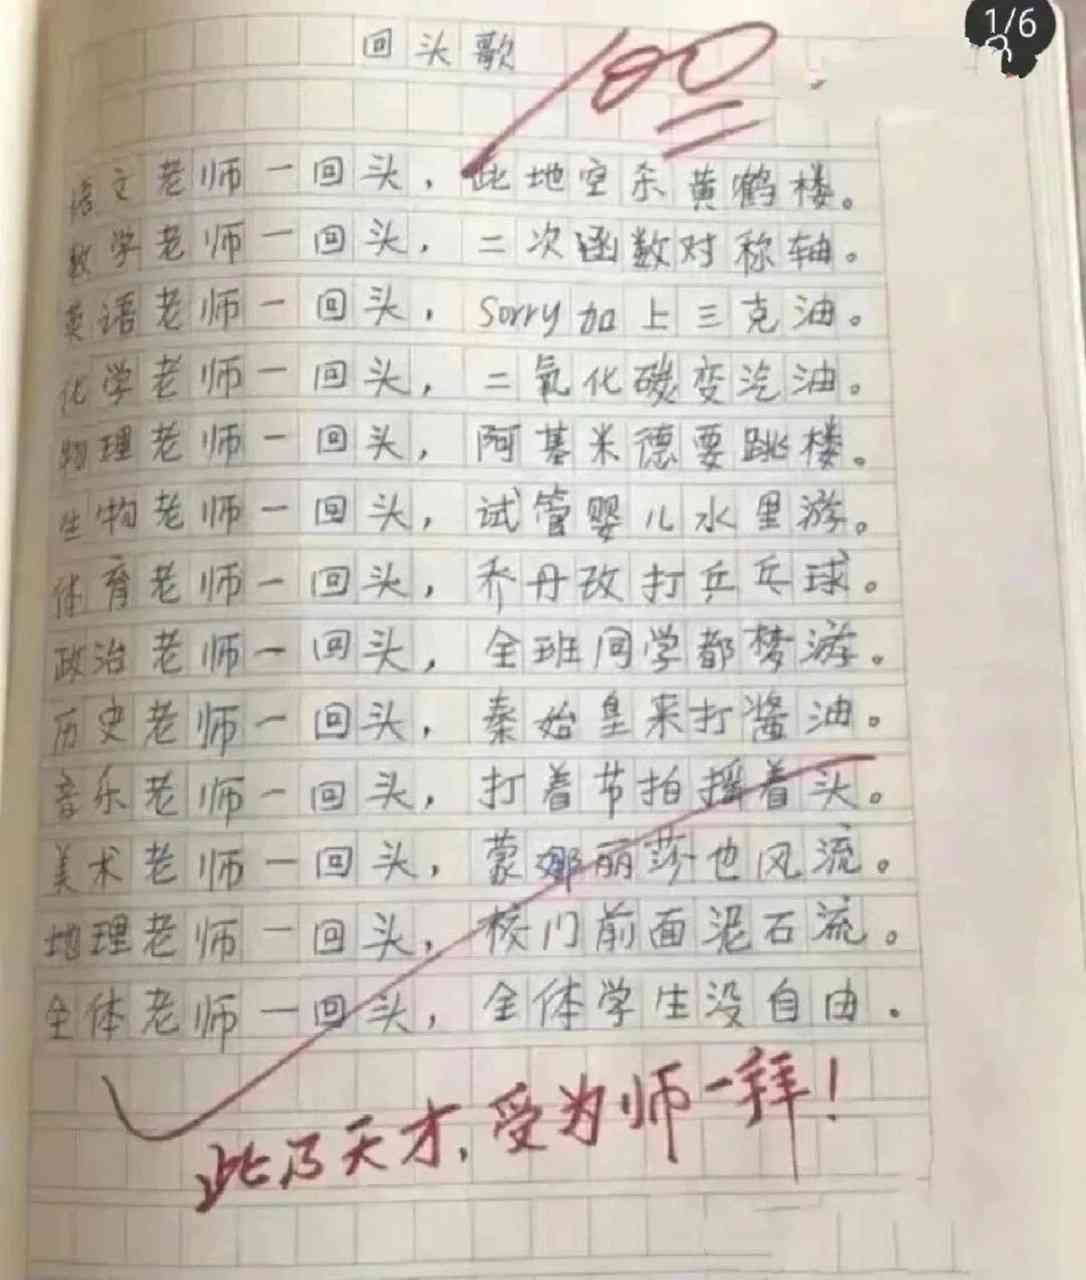 1/6
回头歌
100
语文老师一回头，此地空余黄鹤楼。
数学老师一回头，二次函数对称轴。
英语老师一回头，Sorry加上三克油。
化学老师一回头，二氧化碳变汽油。
物理老师一回头，阿基米德要跳楼。
生物老师一回头，试管婴儿水里游。
体育老师一回头，乔丹改打乒乓球。
政治老师一回头，全班同学都梦游。
历史老师一回头，秦始皇来打酱油。
音乐老师一回头，打着节拍摇着头。
美术老师一回头，蒙娜丽莎也风流。
地理老师一回头，校门前面泥石流。
全体老师一回头，全体学生没自由。
此乃天才，受为师一拜！